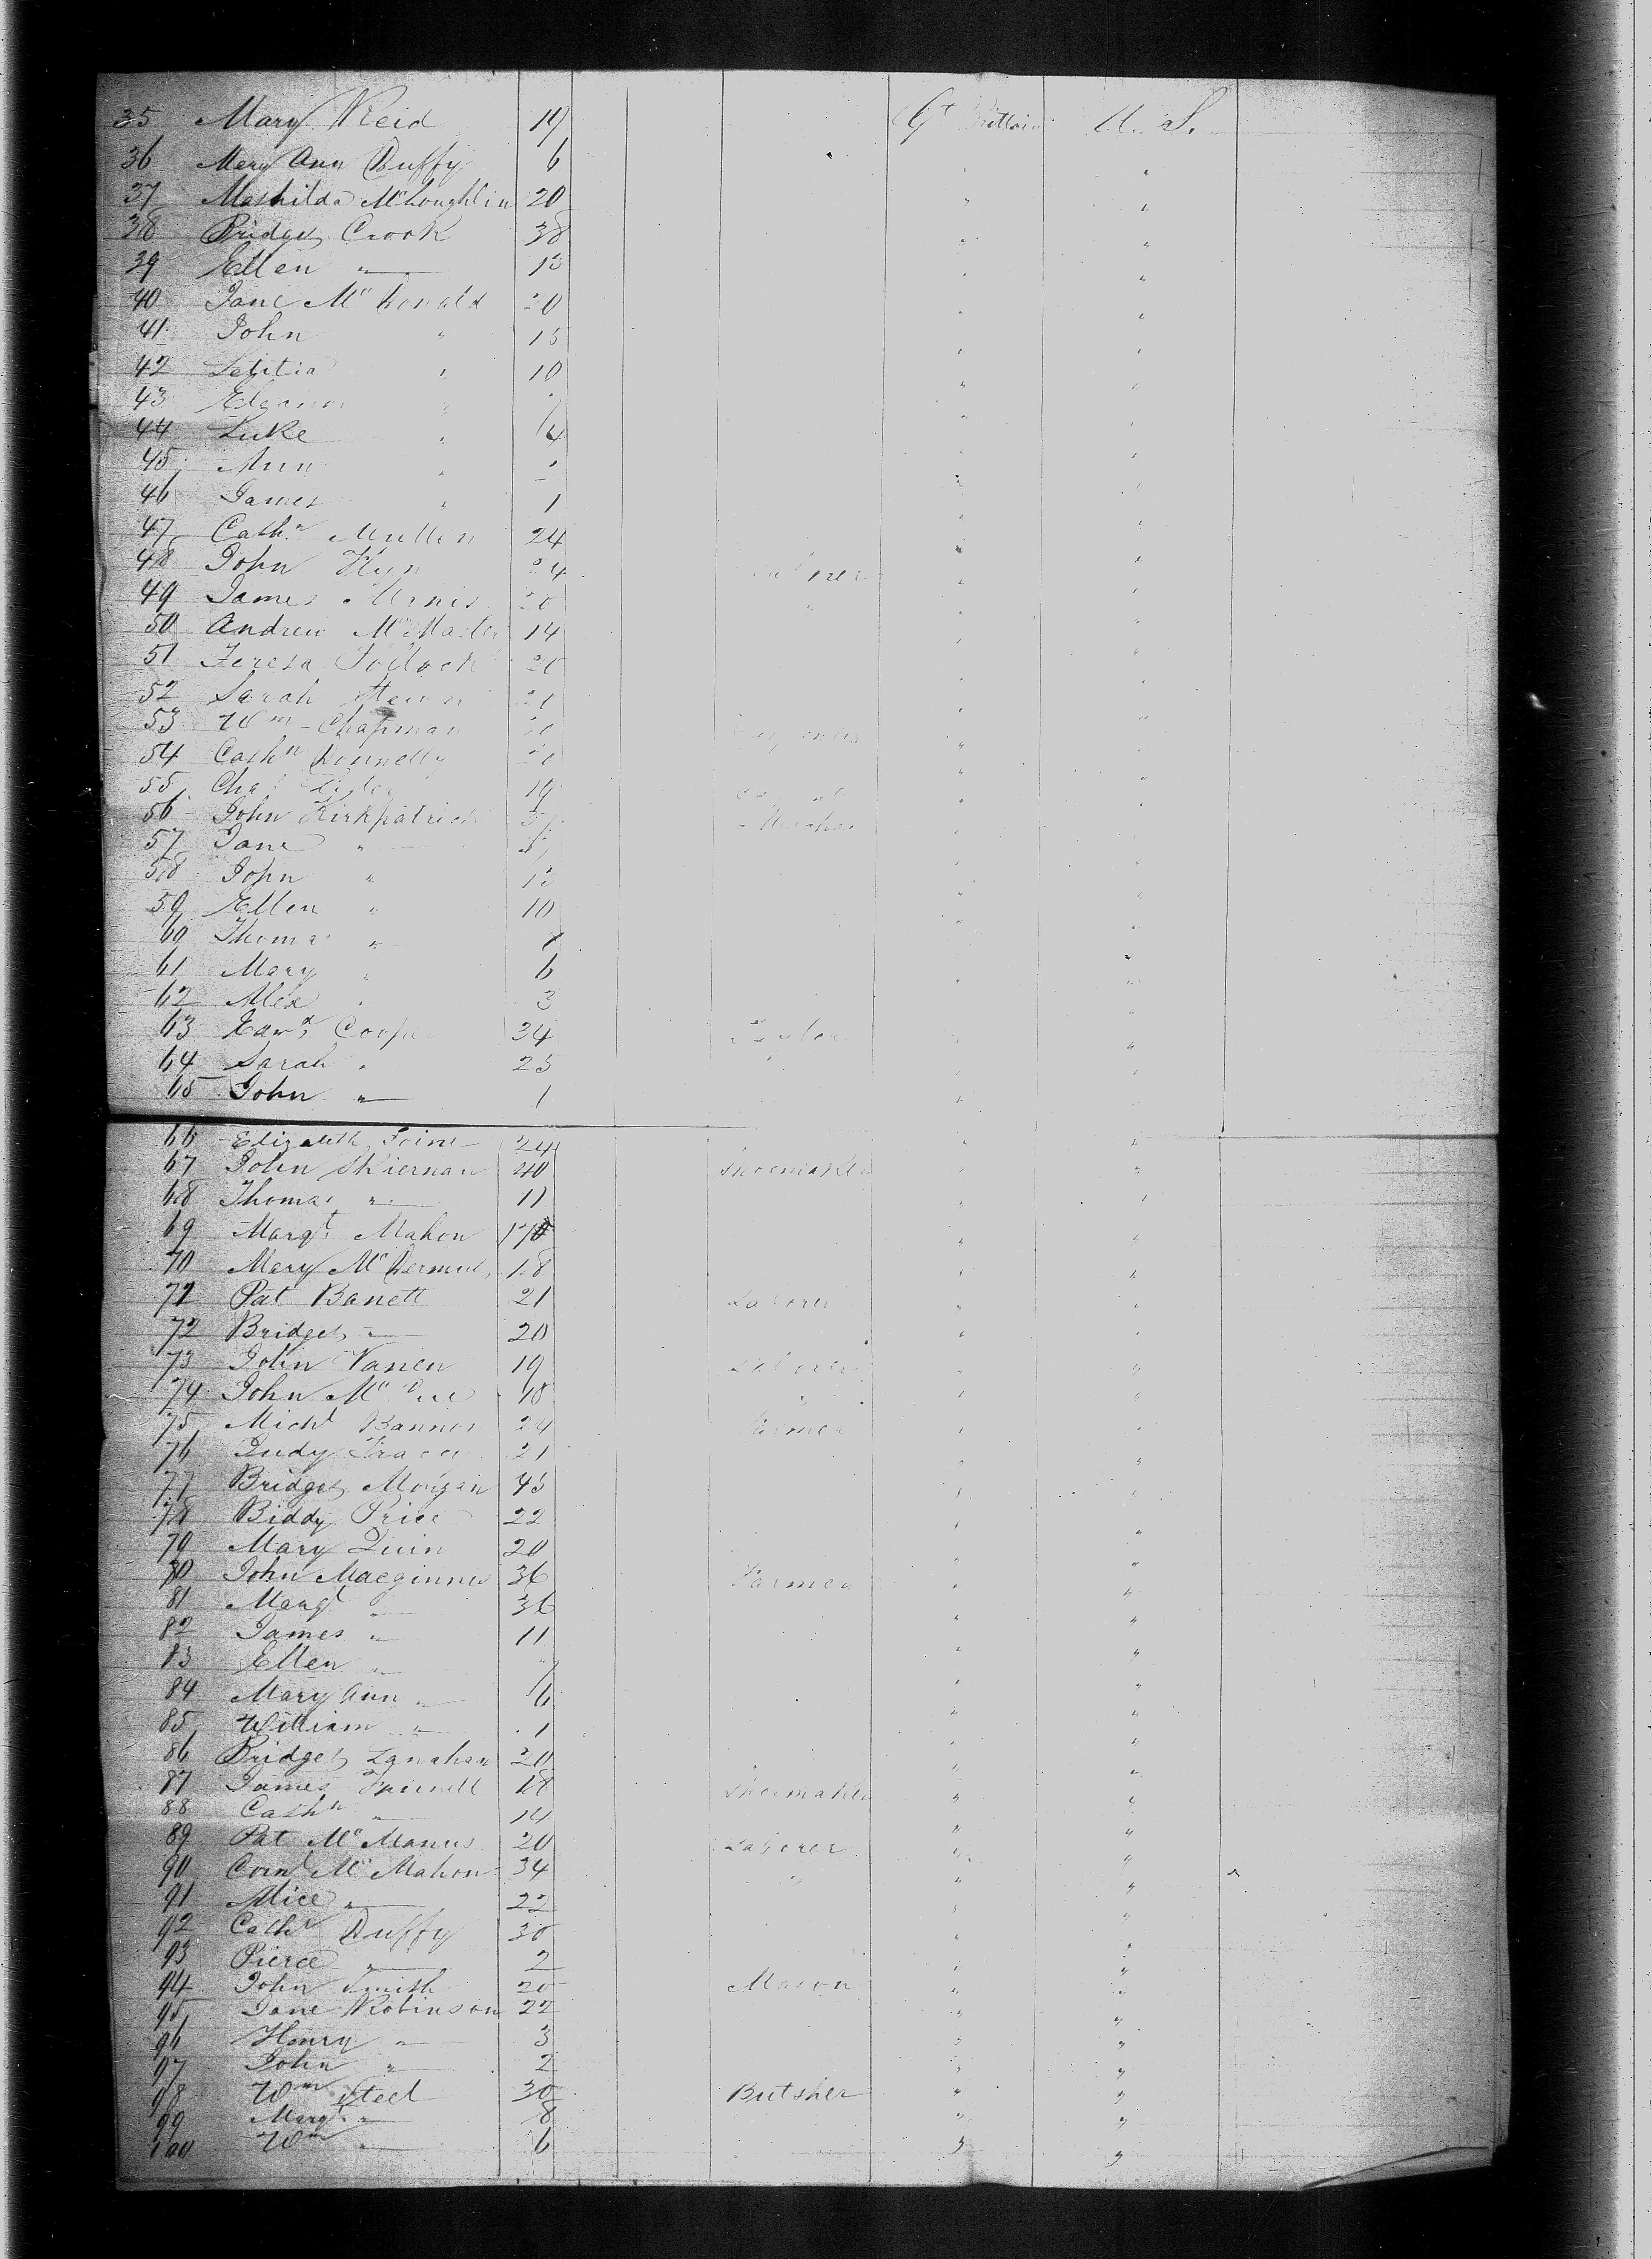 35 Mary Reid 19 Gt Brittain U. S.
36 Mary Ann Duffy 6 " "
37 Mathilda McLoughlin 20 " "
38 Bridget Crook 38 " "
39 Ellen " 13 " "
40 Jane McDonald " "
41 John " 13 " "
42 Letitia " 10 " "
43 Eleanor " 7 " "
44 Luke " 4 " "
45 Ann " " "
46 James " 1 " "
47 Cathn Mullen 24 " "
48 John Flyn 24 " "
49 James " " "
50 Andrew McMaster 14 " "
51 Teresa Pollock " "
52 Sarah " "
53 Wm Chapman " "
54 Cathn Donnelly " "
55 19 " "
56 John Kirkpatrick " "
57 Jane " " "
58 John " " "
59 Ellen " 10 " "
60 Thomas " " "
61 Mary " 6 " "
62 Alex " 3 " "
63 Edwd Cooper 34 " "
64 Sarah " 23 " "
65 John " 1 " "
66 Elizabeth 24 " "
67 John Skiernan 40 Shoemaker " "
68 Thomas " 11 " "
69 Margt Mahon " "
70 Mary McDermid 18 " "
71 Pat Barrett 21 Laborer " "
72 Bridget " 20 " "
73 John 19 Laborer " "
74 John 18 " " "
75 Michl Bannon 24 Farmer " "
76 Judy 21 " "
77 Bridget Morgan 45 " "
78 Biddy Price 22 " "
79 Mary Quin 20 " "
80 John Macginnis 36 Farmer " "
81 Margt " 36 " "
82 James " 11 " "
83 Ellen " 7 " "
84 Mary Ann " 6 " "
85 William " 1 " "
86 Bridget Lanahan 20 " "
87 James 18 Shoemaker " "
88 Cathn " 14 " "
89 Pat McManus 20 Laborer " "
90 Cornl McMahon 34 " " "
91 Alice " 22 " "
92 Cathn Duffy 30 " "
93 Pierce " 2 " "
94 John Smith 20 Mason " "
95 Jane Robinson 22 " "
96 Henry " 3 " "
97 John " 2 " "
98 Wm Steel 30 Butsher " "
99 Margt " 8 " "
100 Wm " 6 " "